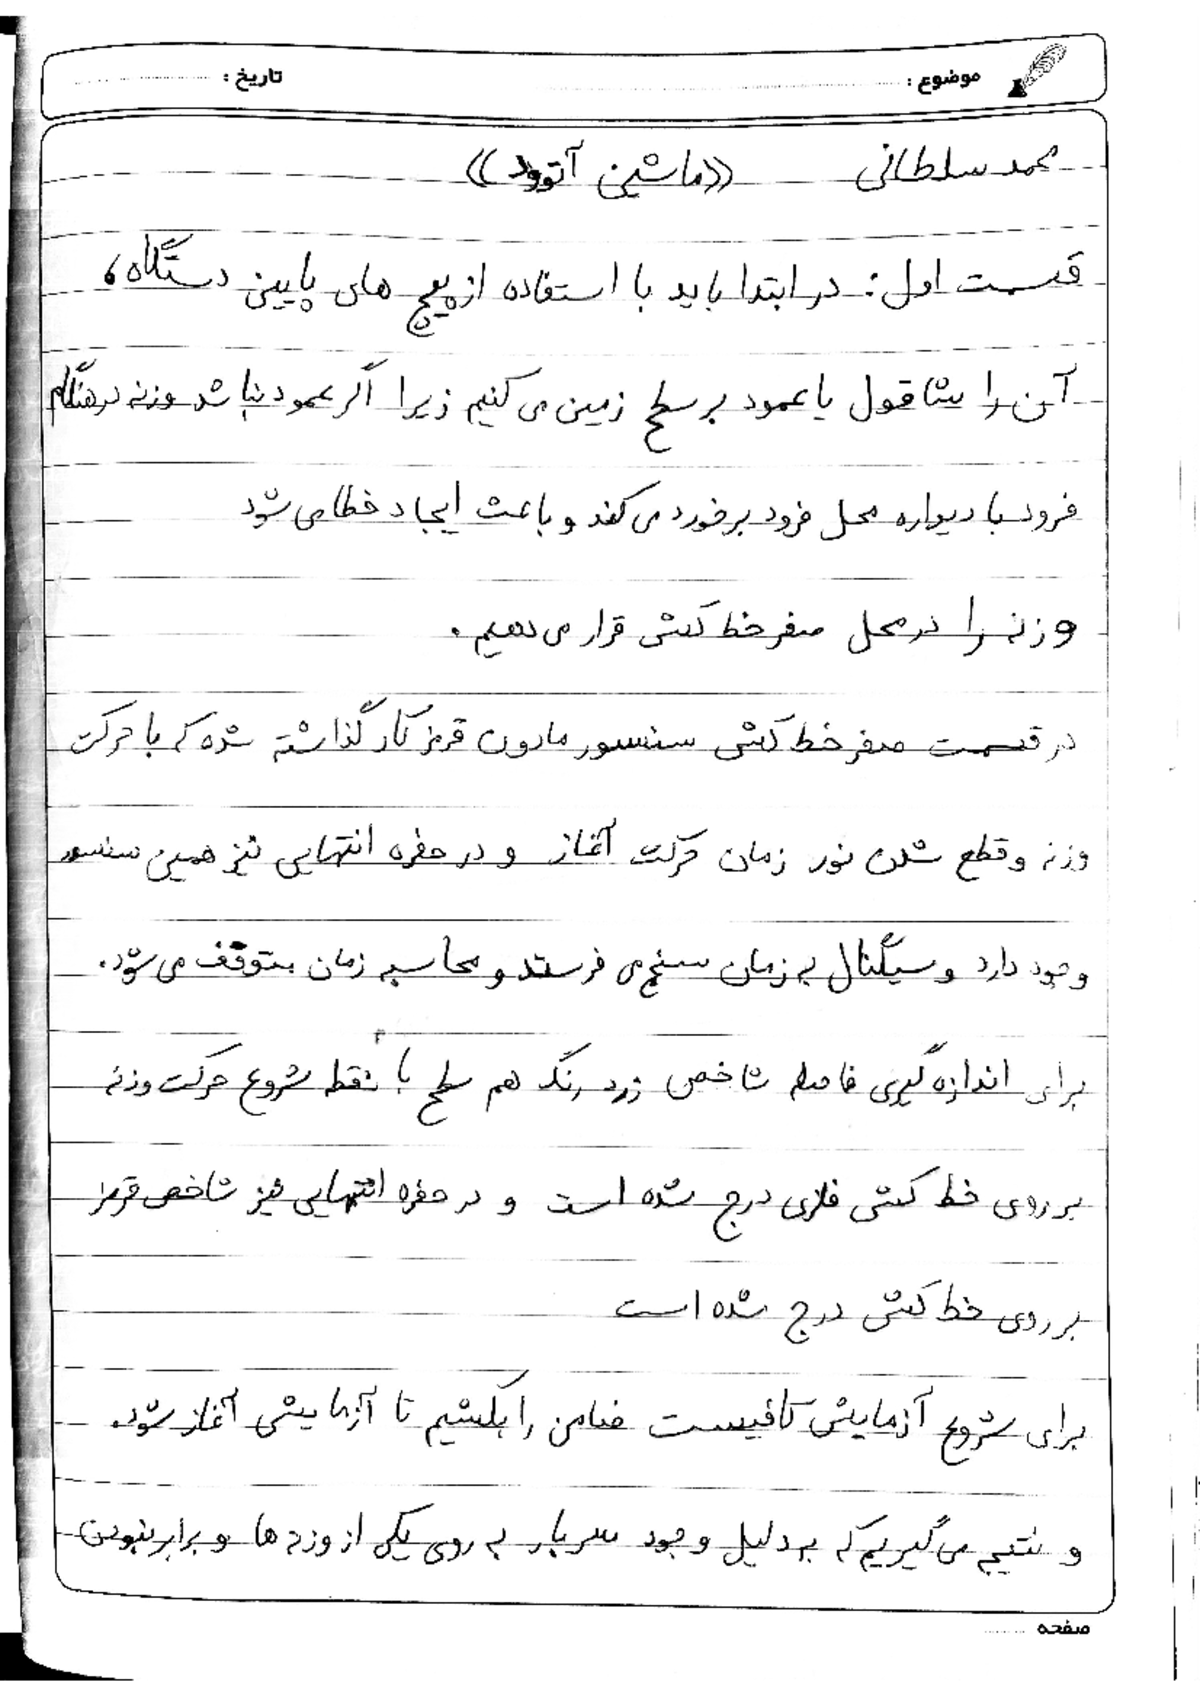 موضوع : تاریخ :
محمد سلطانی «ماشین آتوود»
قسمت اول : در ابتدا باید با استفاده از پیچ های پایین دستگاه ،
آن را شاقول یا عمود بر سطح زمین می کنیم زیرا اگر عمود نباشد وزنه در هنگام
فرود با دیواره محل فرود برخورد می کند و باعث ایجاد خطا می شود
وزنه را در محل صفر خط کش قرار می دهیم .
در قسمت صفر خط کش سنسور مادون قرمز کار گذاشته شده که با حرکت
وزنه و قطع شدن نور زمان حرکت آغاز و در حفره انتهایی نیز همین سنسور
وجود دارد و سیگنال به زمان سنج می فرستد و محاسبه زمان متوقف می شود.
برای اندازه گیری فاصله شاخص زرد رنگ هم سطح با نقطه شروع حرکت وزنه
بر روی خط کش فلزی درج شده است و در حفره انتهایی نیز شاخص قرمز
بر روی خط کش درج شده است
برای شروع آزمایش کافیست ضامن را بکشیم تا آزمایش آغاز شود.
و نتیجه می گیریم که به دلیل وجود سربار به روی یکی از وزنه ها و برابر نبودن
صفحه